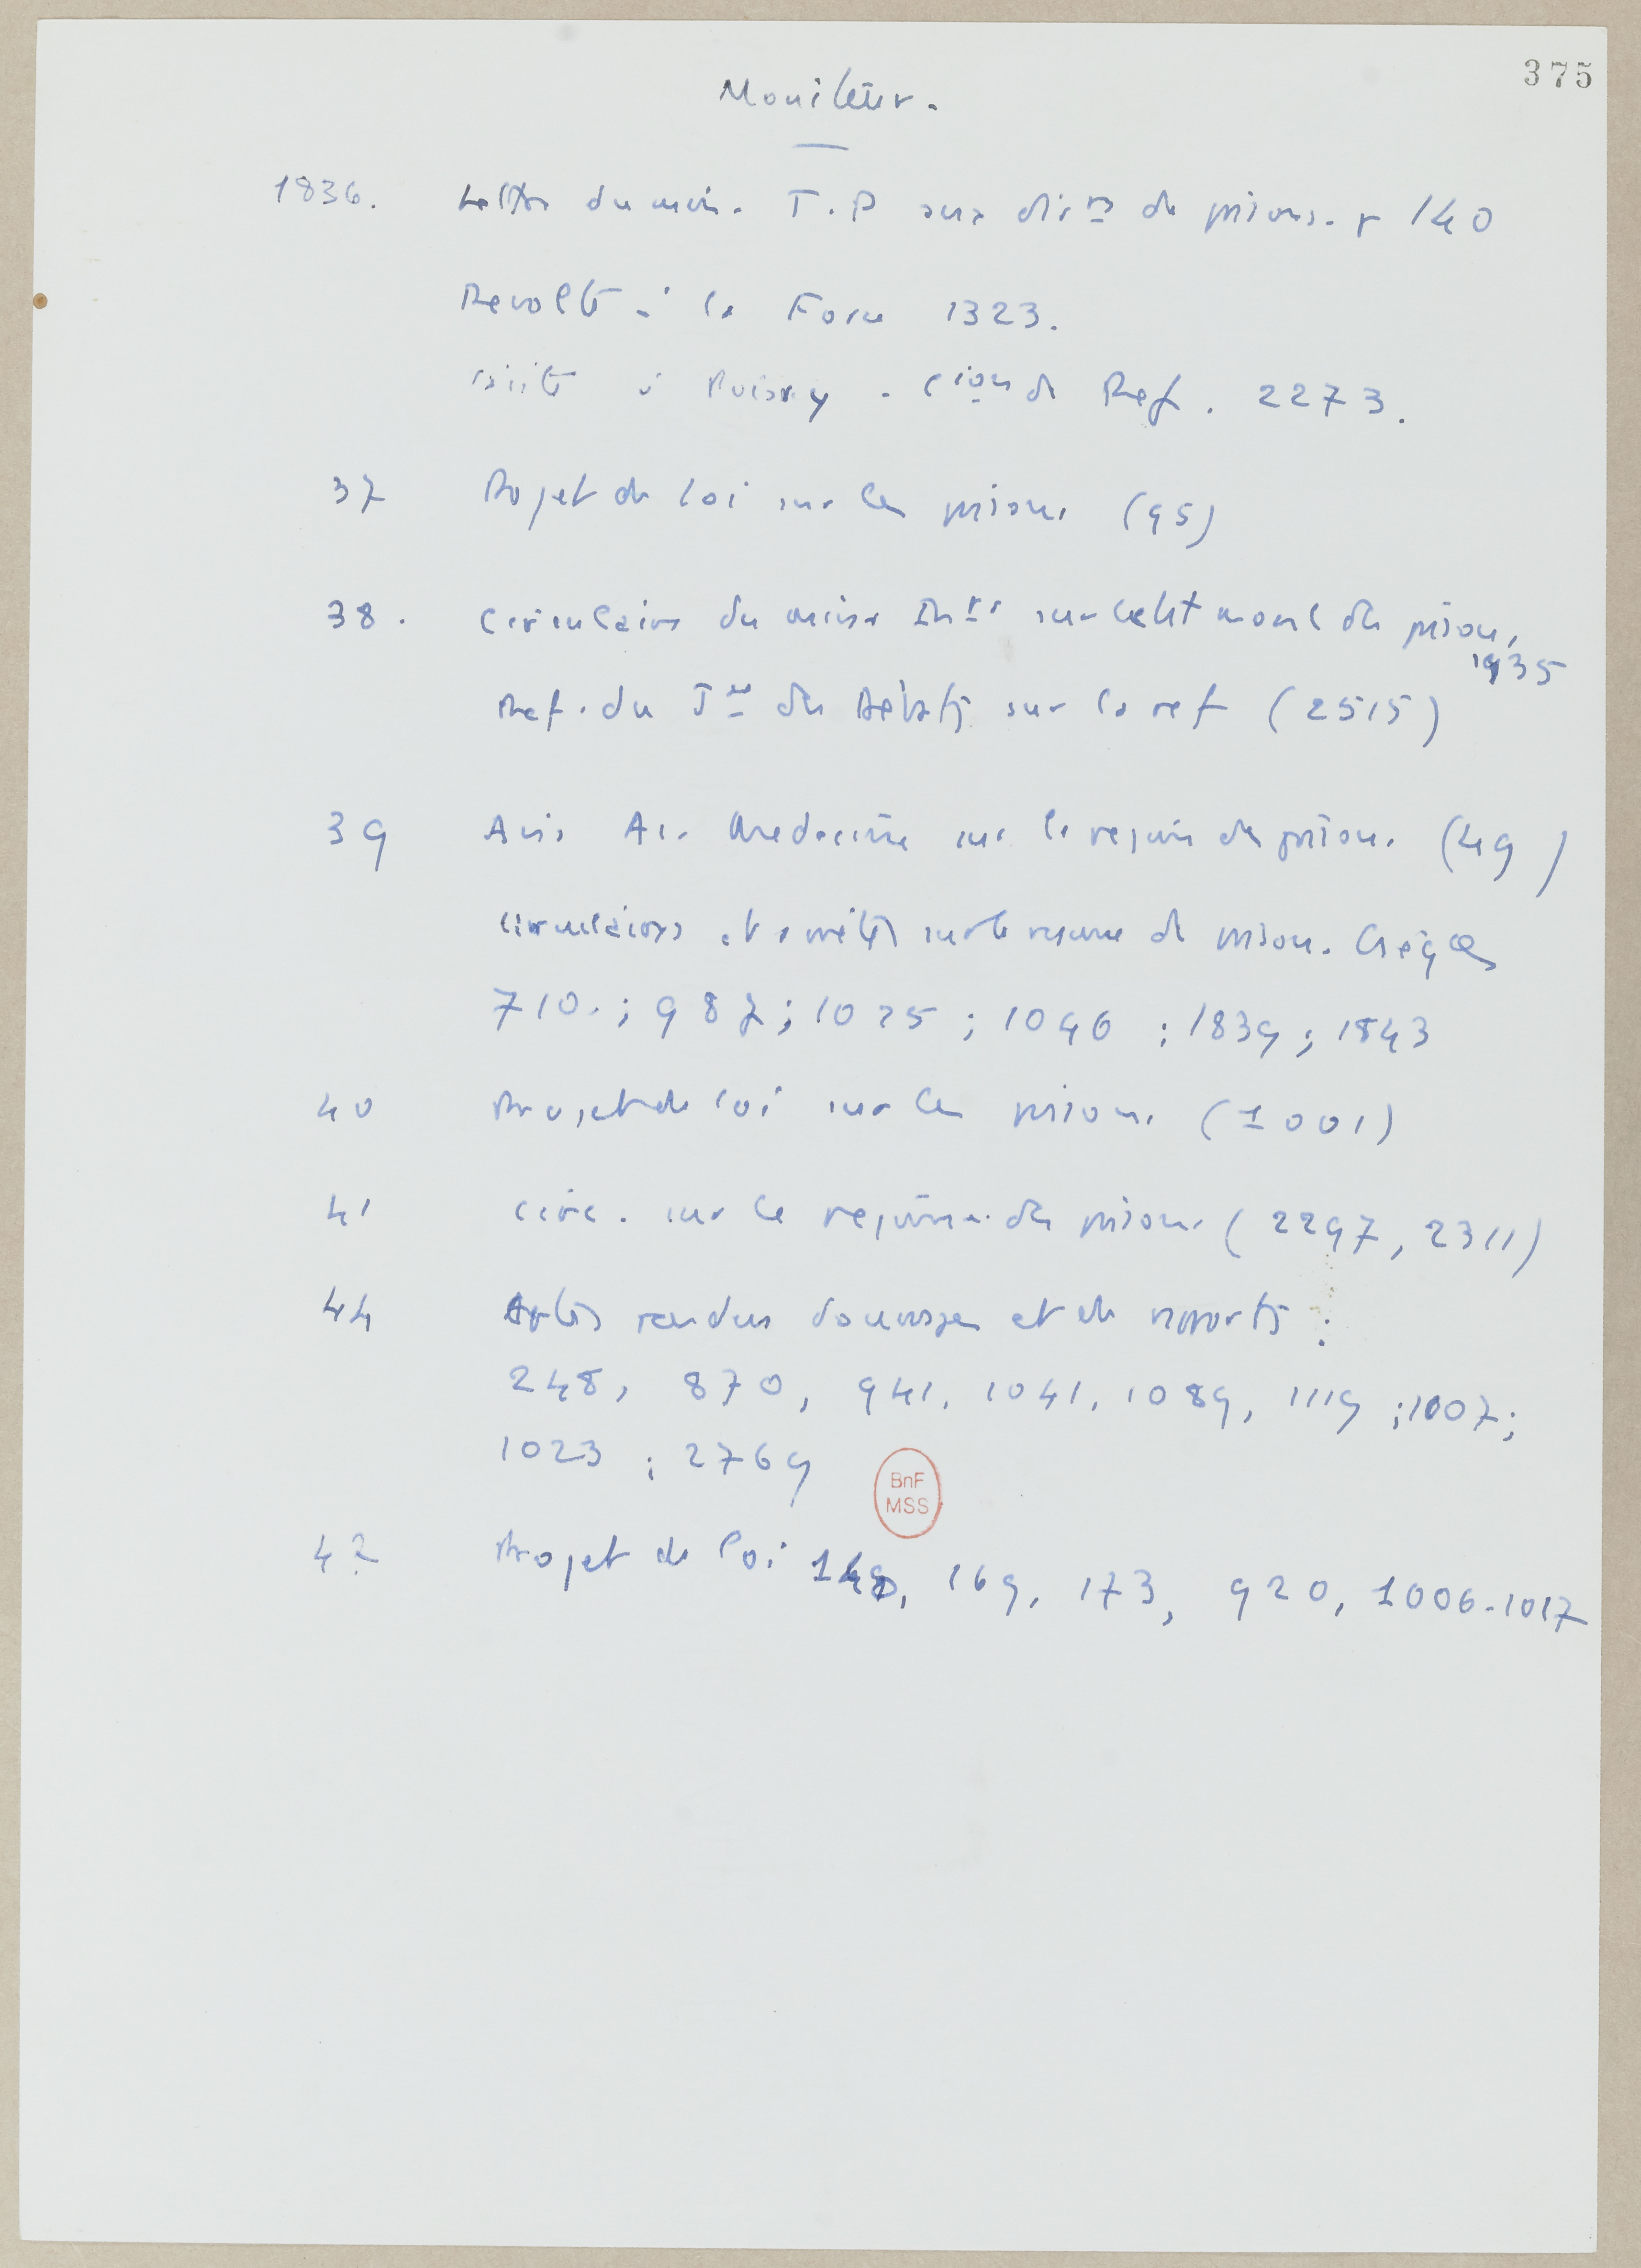 375
Moniteur.
1836. Lettre du min. T.P aux dirrs de prisons. p 140
Revolte à la Force 1323.
visite à Poissy. Cion de Ref. 2273.
37 Projet de loi sur les prisons (95)
38. Circulaire du minis Intr sur l'etat moral des prisons
1935
Ref. du Jal des Débats sur la ref (2515)
39 Avis Ac. Medecine sur le regime des prisons (49)
Circulaires et arretés sur le regime de prison.
710.; 987; 1025; 1046; 1839; 1843
40 Projet de loi sur les prisons (1001)
41 circ. sur le regime des prisons (2297, 2311)
44 rendus et de rapports :
248, 870, 941, 1041, 1089, 1119; 1007;
1023; 2769
BnF
MSS
42 Projet de loi 169, 173, 920, 1006-1017